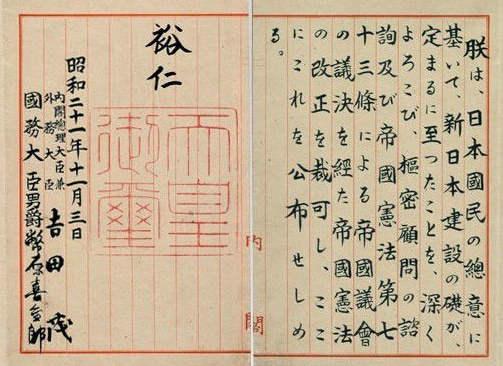 朕は、日本國民の總意に
基いて、新日本建設の礎が、
定まるに至つたことを、深く
よろこび、樞密顧問の諮
詢及び帝國憲法第七
十三條による帝國議會
の議決を經た帝國憲法
の改正を裁可し、ここ
にこれを公布せしめ
る。
裕仁
天皇
御璽
昭和二十一年十一月三日
内閣總理大臣兼
外務大臣 吉田茂
國務大臣 男爵 幣原喜重郎
内閣